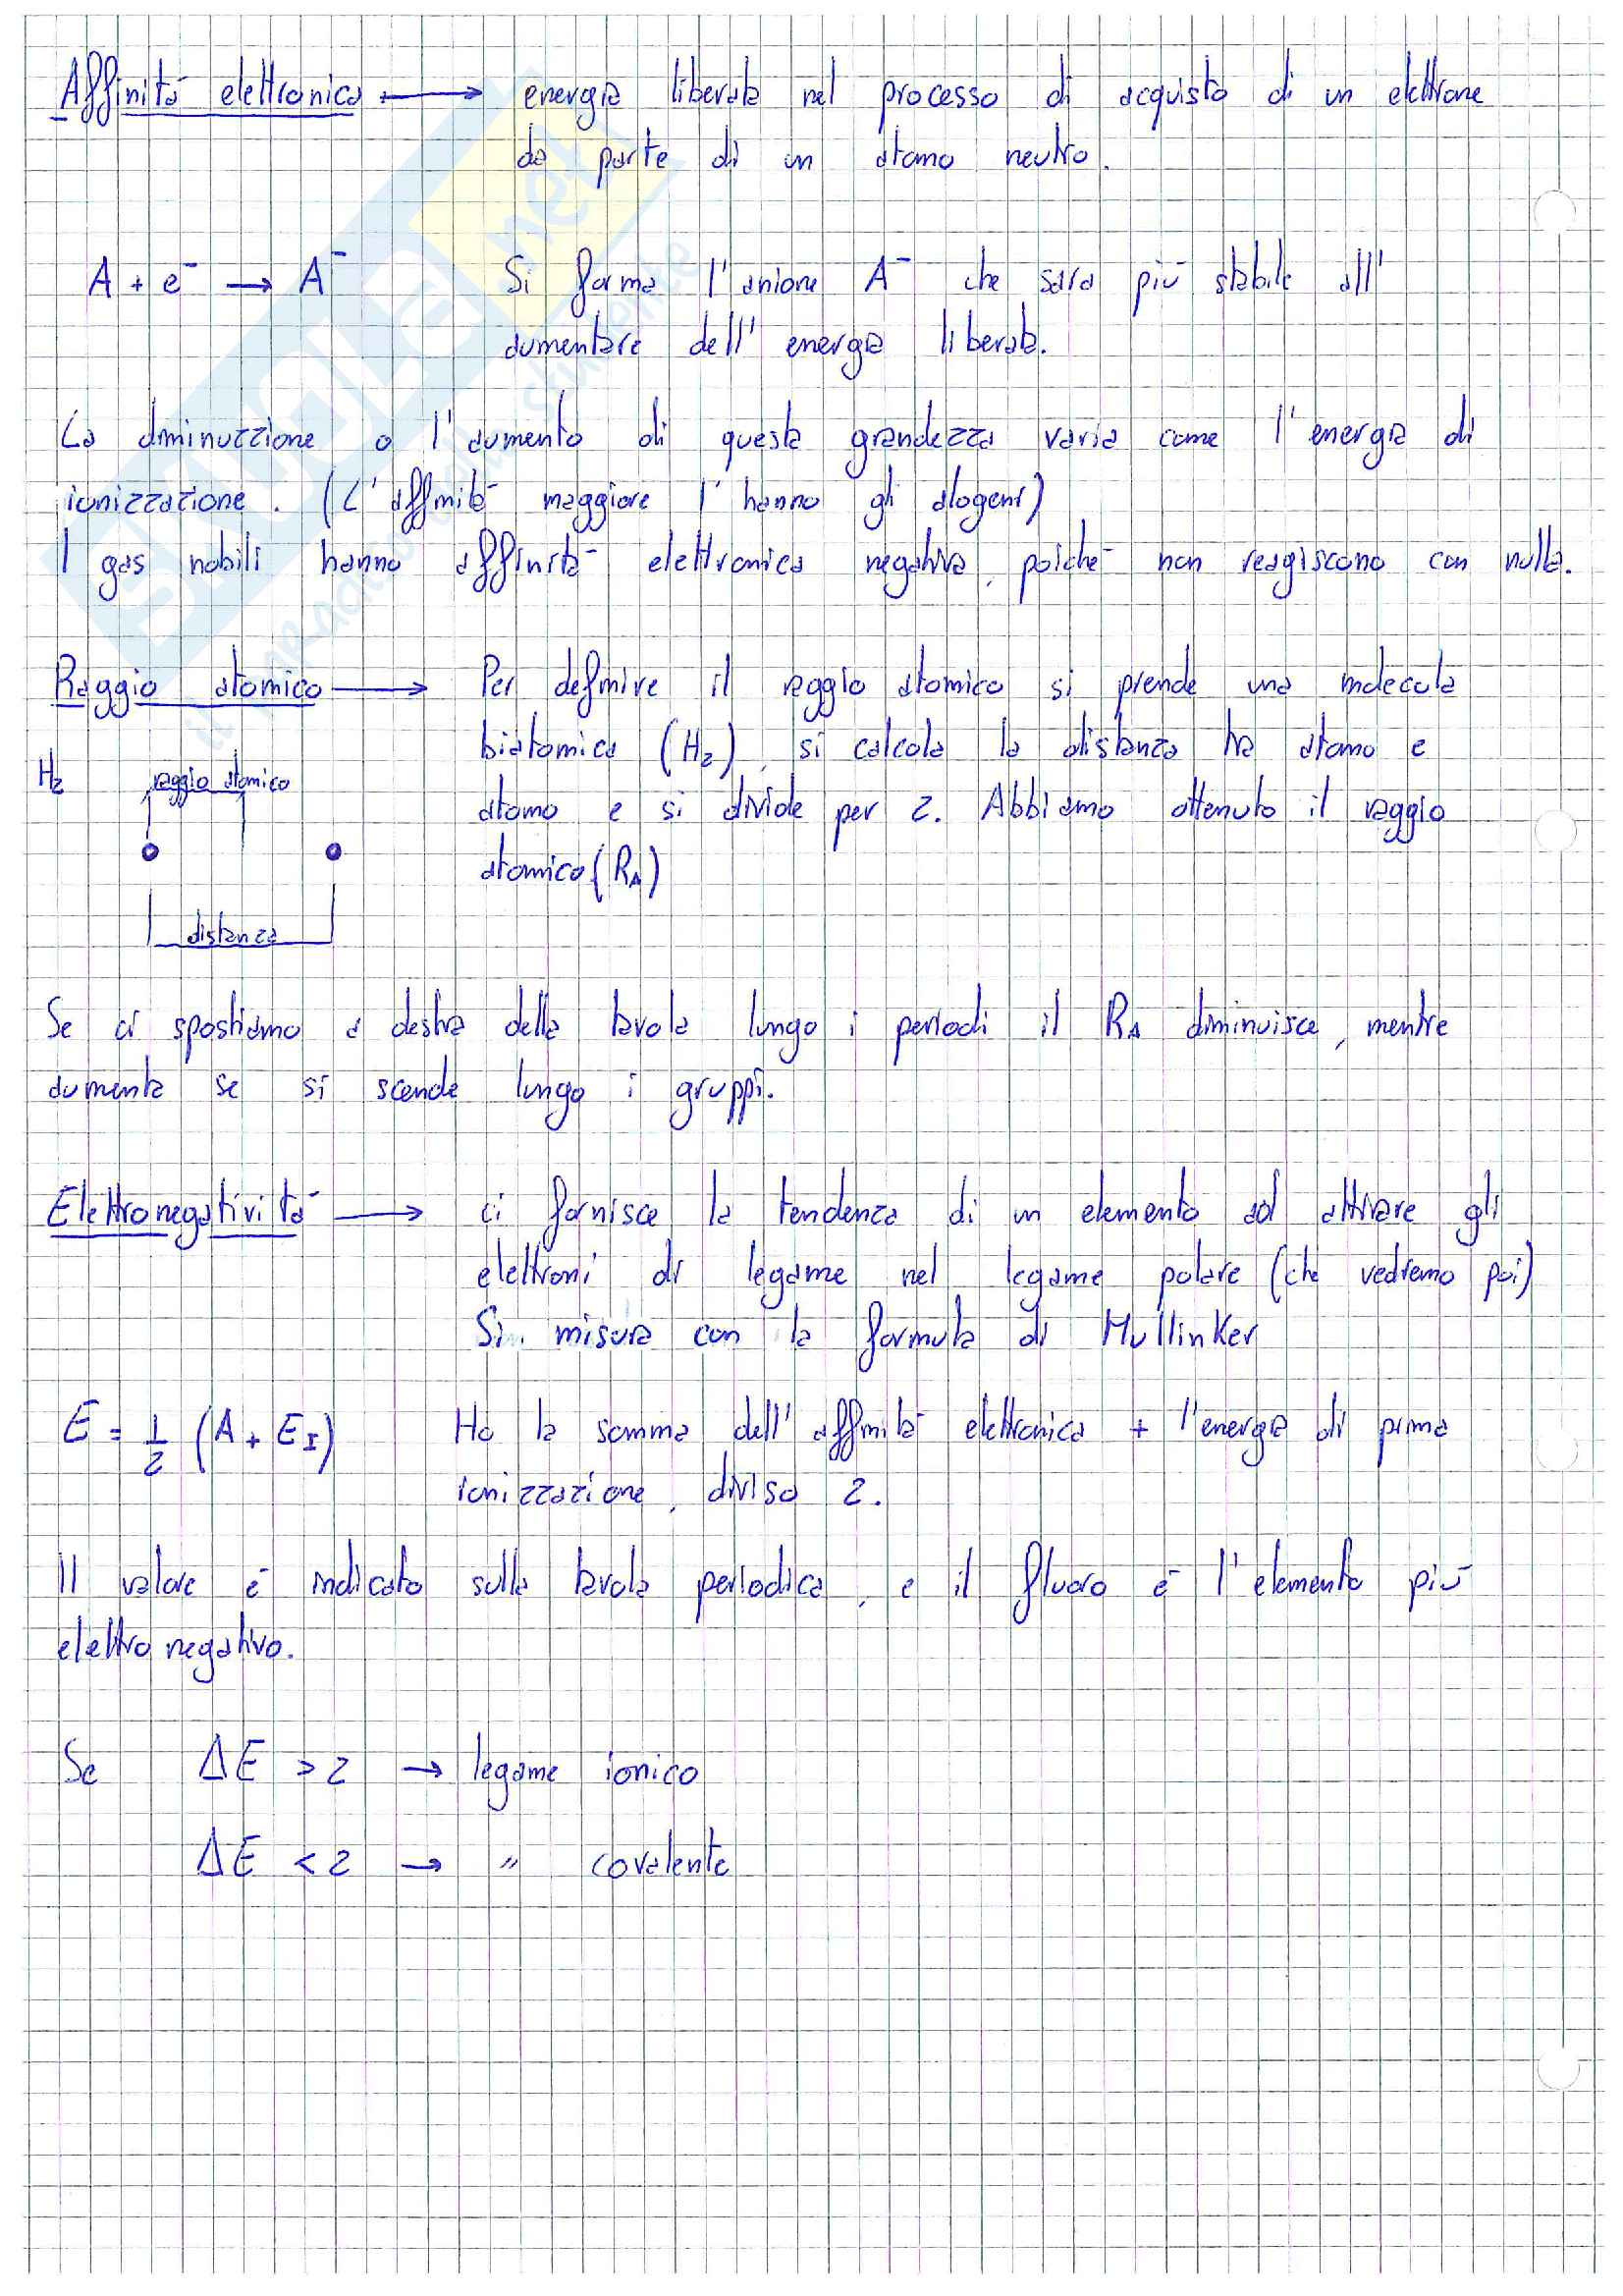 Affinità elettronica → energia liberata nel processo di acquisto di un elettrone
da parte di un atomo neutro.
A + e⁻ → A⁻ Si forma l'anione A⁻ che sarà più stabile all'
aumentare dell'energia liberata.
La diminuzzione o l'aumento di questa grandezza varia come l'energia di
ionizzazione. (L'affinità maggiore l'hanno gli alogeni)
I gas nobili hanno affinità elettronica negativa, poiché non reagiscono con nulla.
Raggio atomico → Per definire il raggio atomico si prende una molecola
biatomica (H₂), si calcola la distanza tra atomo e
atomo e si divide per 2. Abbiamo ottenuto il raggio
atomico (R_A)
H₂ raggio atomico
distanza
Se ci spostiamo a destra della tavola lungo i periodi il R_A diminuisce, mentre
aumenta se si scende lungo i gruppi.
Elettronegatività → ci fornisce la tendenza di un elemento ad attirare gli
elettroni di legame nel legame polare (che vedremo poi)
Si misura con la formula di Mullinker
E = 1/2 (A + E_I) Ho la somma dell'affinità elettronica + l'energia di prima
ionizzazione, diviso 2.
Il valore è indicato sulla tavola periodica, e il fluoro è l'elemento più
elettronegativo.
Se ΔE > 2 → legame ionico
ΔE < 2 → " covalente